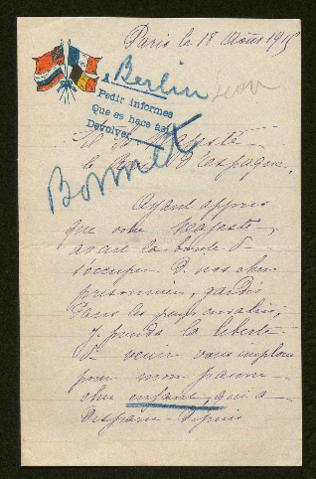 Paris le 18 Août 1915
A Berlin
Leon
Pedir informes
Que es hace así
Devolver
Bonnet
A S. Majesté
le Roi d'Espagne,
Ayant appris
que votre Majesté,
avait la bonté d
s'occuper D nos chers
prisonniers, gardés
Dans les pays envahis,
Je prends la liberté
D venir vous implorer
pour mon pauvre
cher enfant, qui a
Disparu depuis